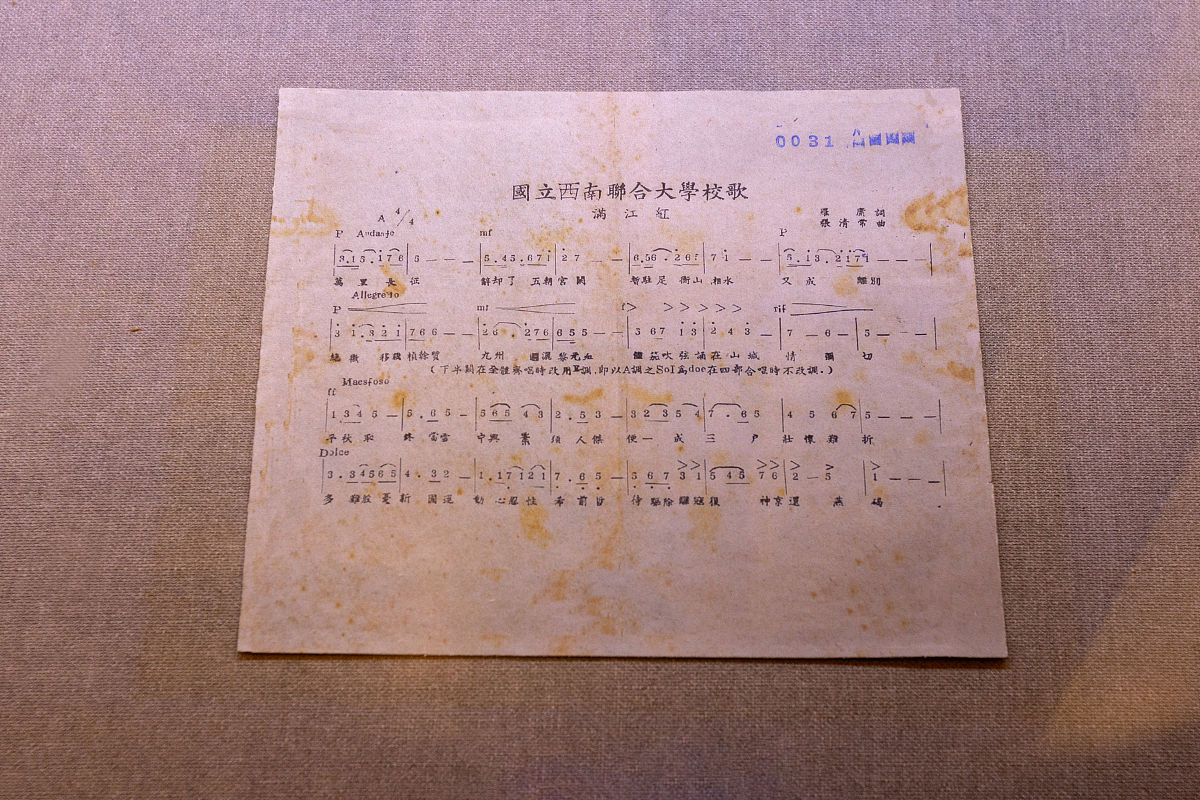 0031
國立西南聯合大學校歌
滿江紅
A 4/4
羅庸 詞
張清常 曲
P Andante mf P
3.15.176 | 5 — — — | 5.45.671 | 27 — — | 6.56.265 | 71 — — | 5.13.217 | 
萬里長征 辭却了 五朝宮闕 暫駐足 衡山湘水 又成 離別
Allegretto
P mf f rit
3 1.321 | 766 — — | 26.276 | 655 — — | 567 13 | 243 — | 7 — 6 — | 5 — — —
絕徼 移栽楨幹質 九州 遍灑黎元血 儘笳吹弦誦在山城 情 彌 切
(下半闋在全體齊唱時改用E調.即以A調之Sol爲doe在四部合唱時不改調.)
Maesfoso
ff
1 34 5 — | 5.65 — | 565 43 | 2.53 — | 3235 4 | 7.65 | 45 67 | 5 — — —
千秋恥 終當雪 中興業 須人傑 便一成三戶 壯懷難折
Dolce
3.34565 | 4.32 — | 1.17121 | 7.65 — | 567 31 | 545 76 | 2 — 5 | 1 — — —
多難殷憂新國運 動心忍性希前哲 待驅除 寇復 神京還 燕 碣